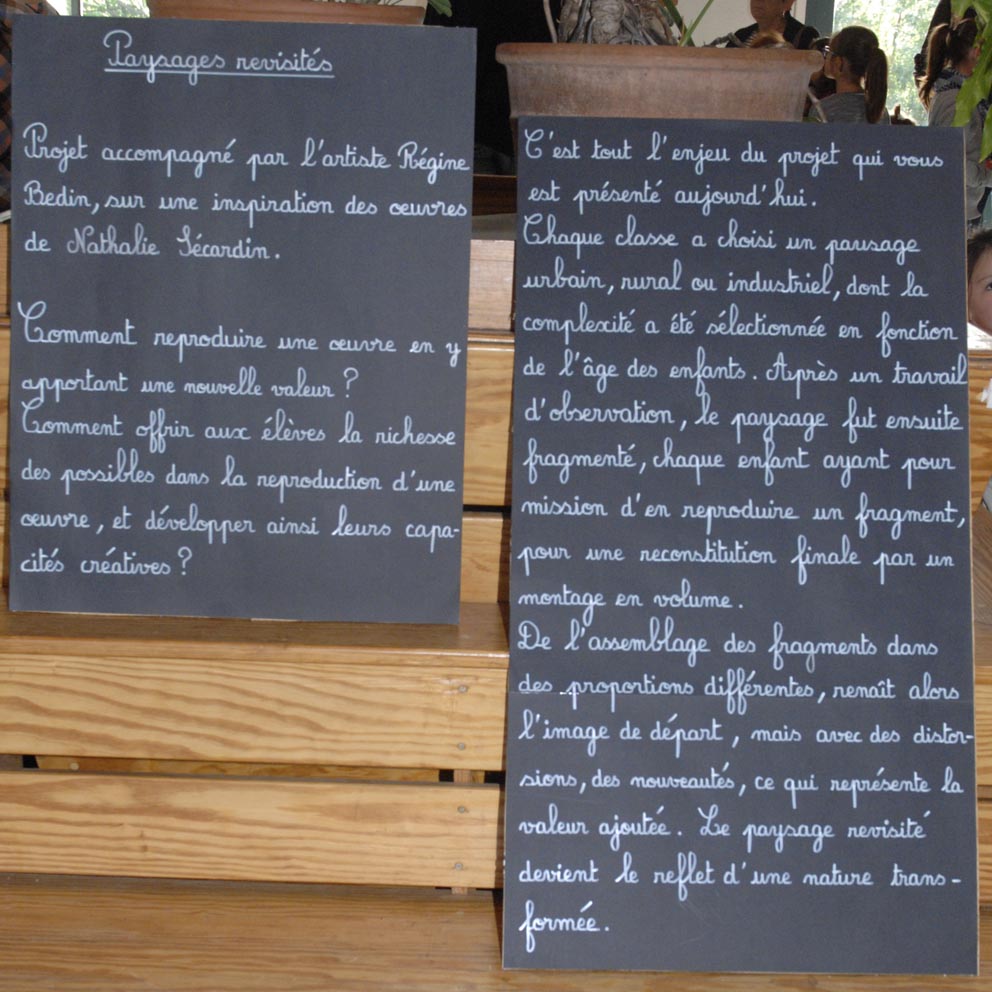 Paysages revisités
Projet accompagné par l'artiste Régine
Bedin, sur une inspiration des œuvres
de Nathalie Sécardin.
Comment reproduire une œuvre en y
apportant une nouvelle valeur ?
Comment offrir aux élèves la richesse
des possibles dans la reproduction d'une
œuvre, et développer ainsi leurs capa-
cités créatives ?
C'est tout l'enjeu du projet qui vous
est présenté aujourd'hui.
Chaque classe a choisi un paysage
urbain, rural ou industriel, dont la
complexité a été sélectionnée en fonction
de l'âge des enfants. Après un travail
d'observation, le paysage fut ensuite
fragmenté, chaque enfant ayant pour
mission d'en reproduire un fragment,
pour une reconstitution finale par un
montage en volume.
De l'assemblage des fragments dans
des proportions différentes, renaît alors
l'image de départ, mais avec des distor-
sions, des nouveautés, ce qui représente la
valeur ajoutée. Le paysage revisité
devient le reflet d'une nature trans-
formée.